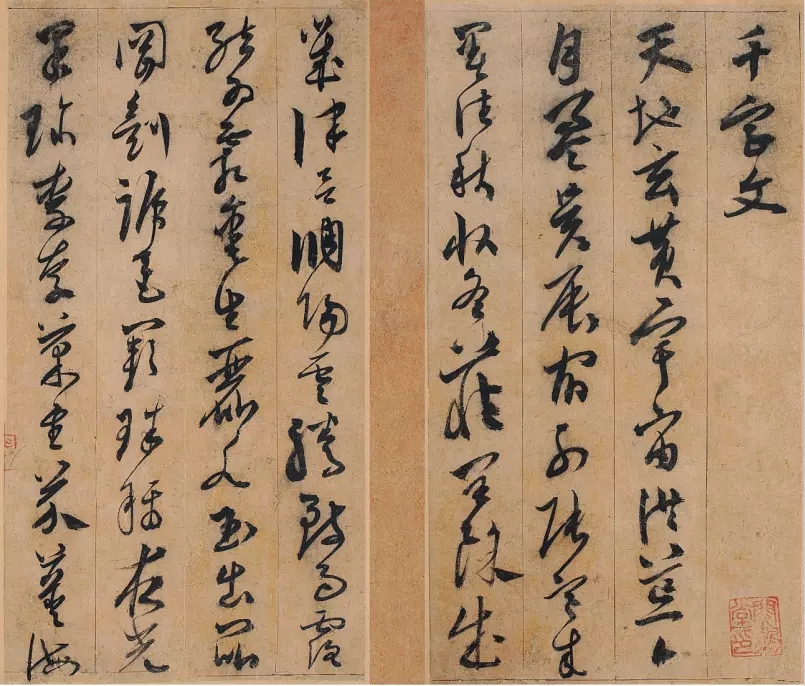 千字文
天地玄黃宇宙洪荒日
月盈昃辰宿列張寒來
暑往秋收冬藏閏餘成
歲律呂調陽雲騰致雨露
結為霜金生麗水玉出崑
岡劍號巨闕珠稱夜光
果珍李柰菜重芥薑海